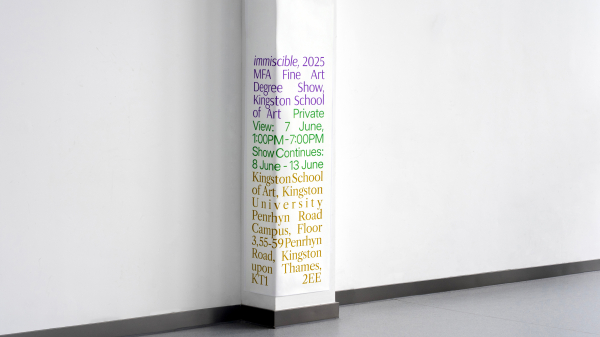 immiscible, 2025
MFA Fine Art
Degree Show,
Kingston School
of Art Private
View: 7 June,
1:00PM-7:00PM
Show Continues:
8 June - 13 June
Kingston School
of Art, Kingston
University
Penrhyn Road
Campus, Floor
3, 55-59 Penrhyn
Road, Kingston
upon Thames,
KT1 2EE